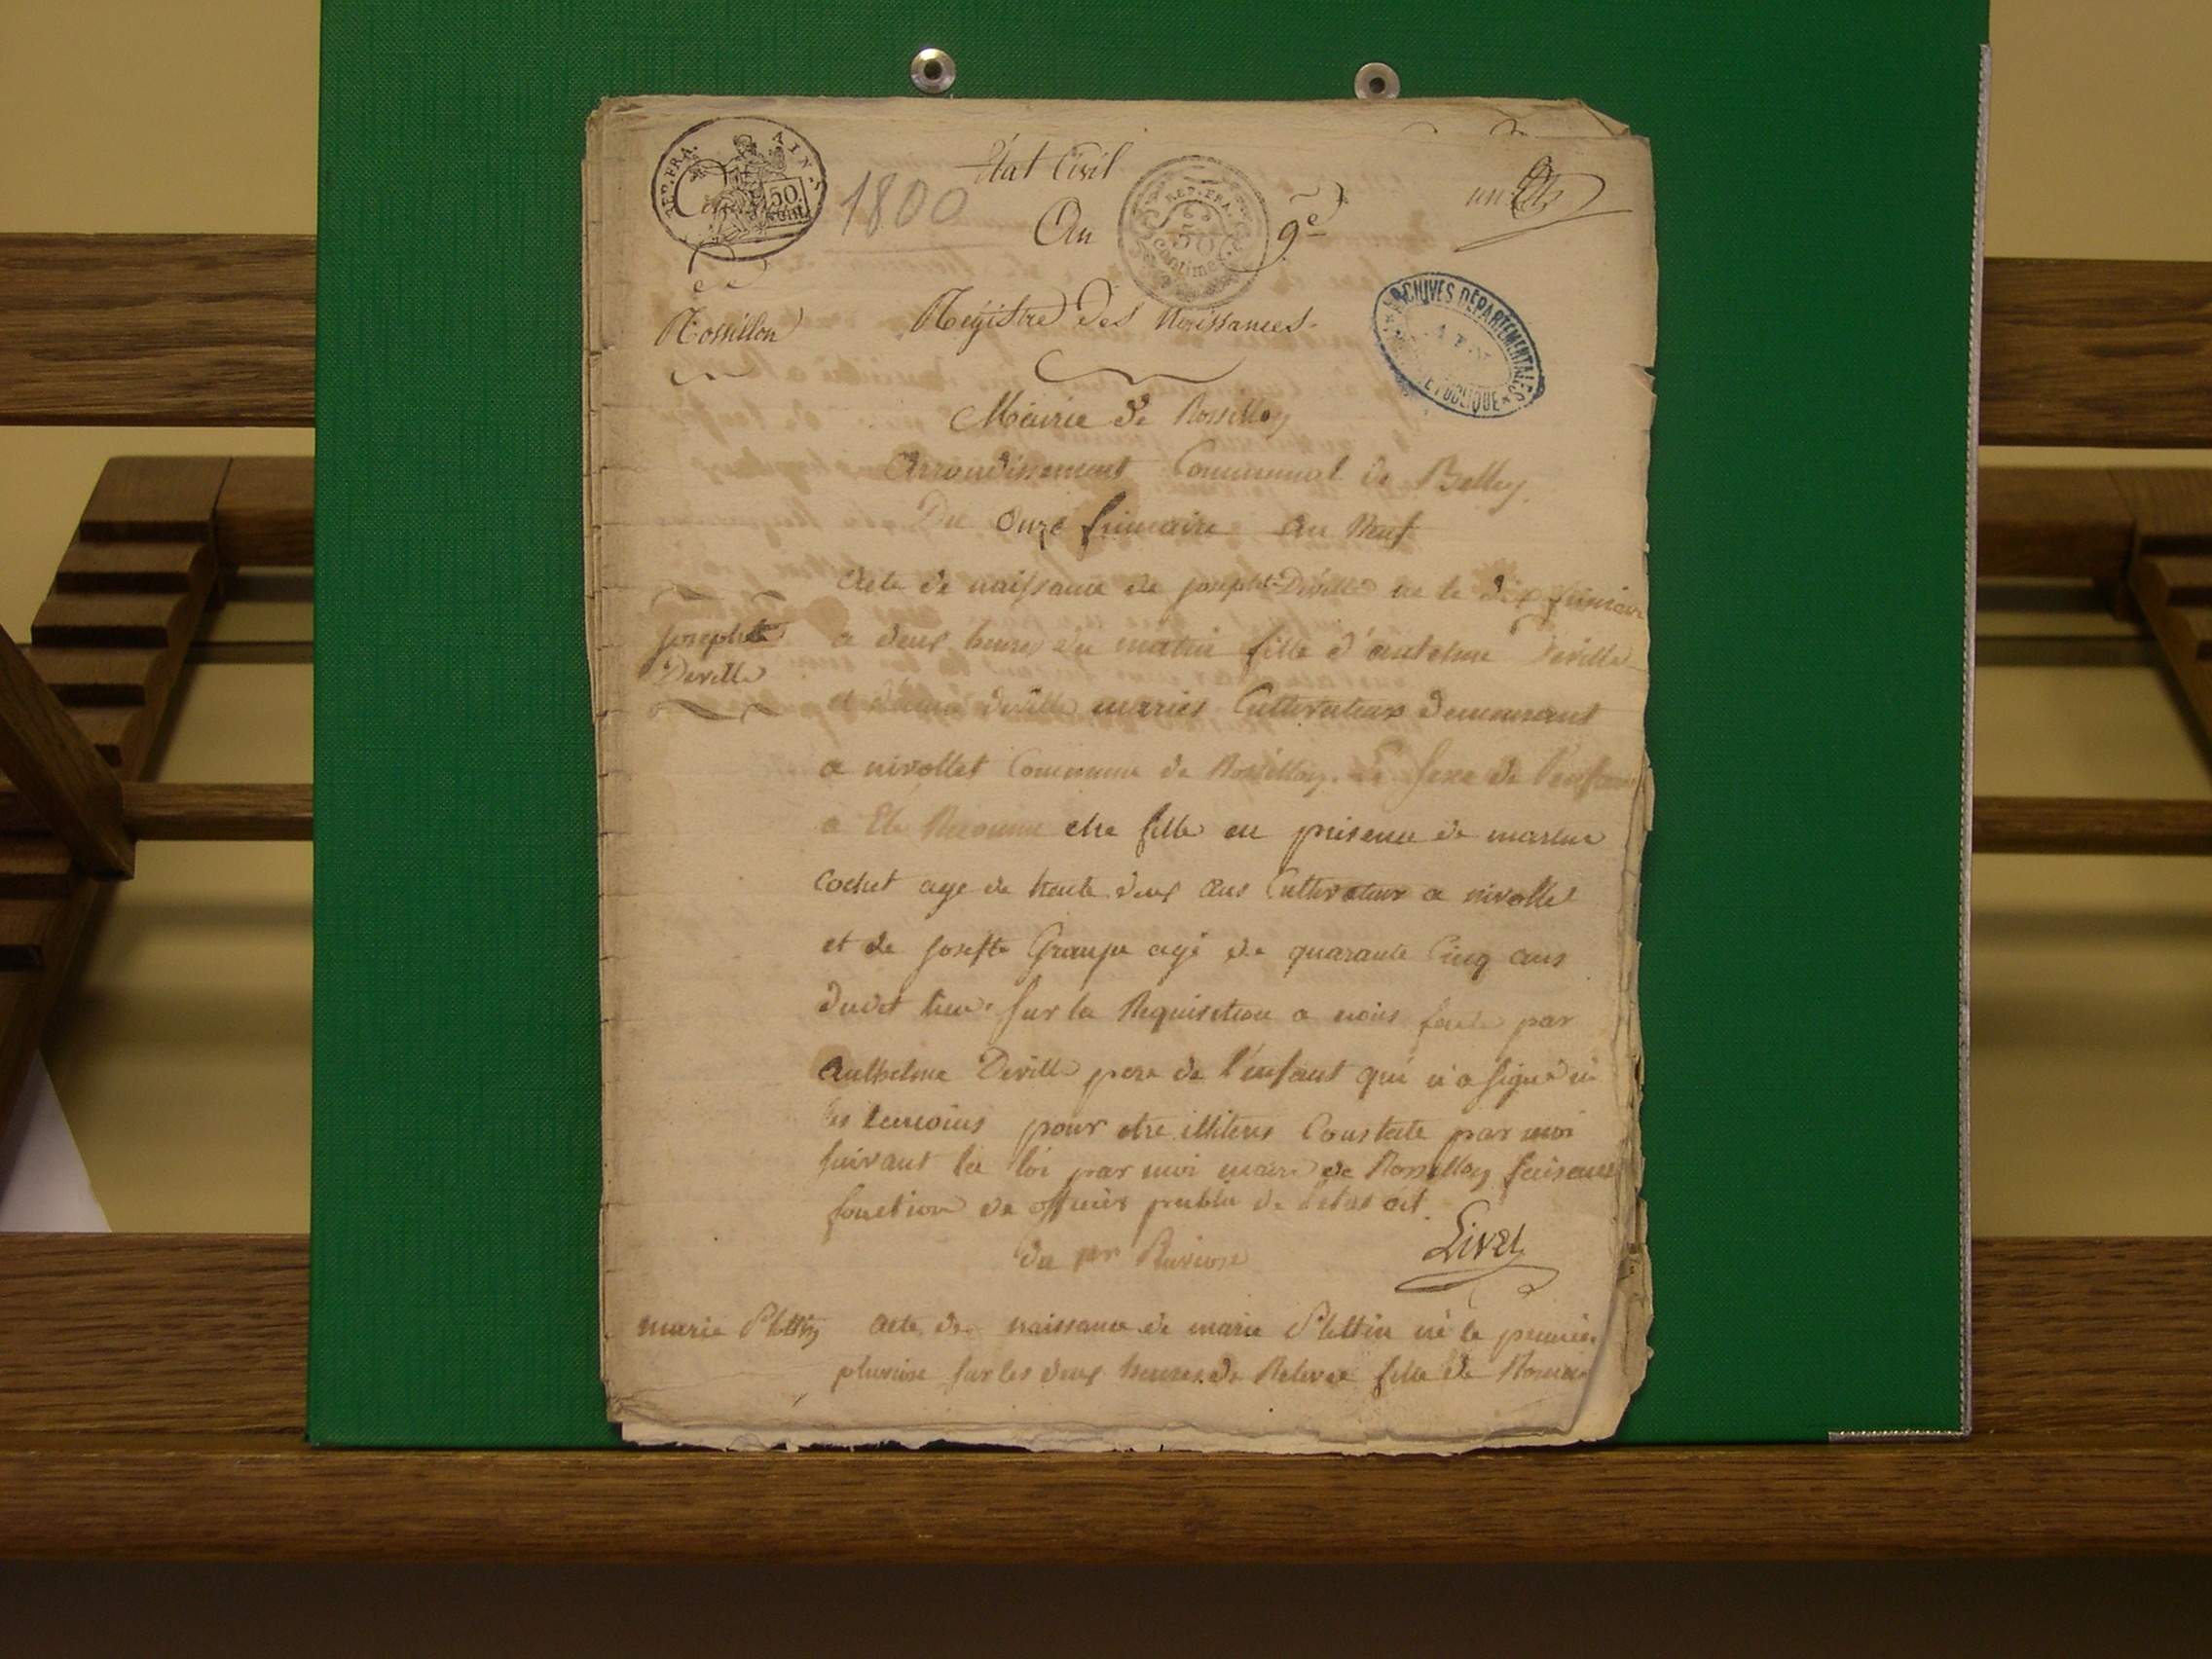 REP. FRA. AIN.
50
Cent.
1800
État Civil
An 9e
REP. FRA.
50
Centimes
un
Rossillon
Régistre des Naissances
ARCHIVES DÉPARTEMENTALES
AIN
RÉPUBLIQUE
Mairie de Rossillon
Arrondissement Communal de Belley
Du Onze frimaire an Neuf
Josephte
Deville
Acte de naissance de josephte Deville ne le dix frimaire
a deux heures du matin fille d'antelme Deville
et deville mariés Cultivateurs demeurant
a nivollet Commune de Rossillon. Le sexe de l'enfant
a Ete Reconnu etre fille en presence de
cochet age de trente deux ans Cultivateur a nivollet
et de josefte agé de quarante Cinq ans
dudit lieu. sur la Requisition a nous faite par
anthelme Deville pere de l'enfant qui n'a signé ni
les temoins pour etre illiterés Constaté par moi
suivant la loi par moi maire de Rossillon faisant
fonction de officier public de l'etat cit.
Livet
Du pr Pluviose
marie Plettin
acte de naissance de marie Plettin né le premier
pluviose sur les deux heures de Relevée fille de Romain